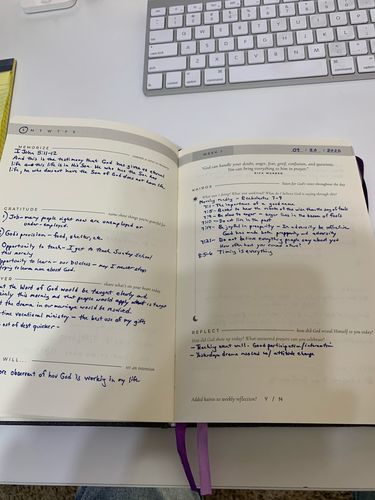 S M T W T F S
MEMORIZE
I John 5:11-12
And this is the testimony that God has given us eternal
life and this life is in his Son. He who has the Son has
life, he who does not have the Son of God does not have life.
GRATITUDE
name three things you're grateful for
1) Job - many people right now are unemployed or
under-employed.
2) God's provision - food, shelter, etc.
Opportunity to teach - I get to teach Sunday School
this morning
opportunity to learn - our
to learn more about God.
PRAYER
share what's on your heart today
the Word of God would be taught clearly and
this morning and that people would apply what is taught
the drama in our marriage would be resolved.
time vocational ministry - the best use of my gifts
out of debt quicker -
I WILL...
set an intention
more observant of how God is working in my life
WEEK 1
09 / 20 / 2020
"God can handle your doubt, anger, fear, grief, confusion, and questions.
You can bring everything to him in prayer."
RICK WARREN
KAIROS
listen for God's voice throughout the day
Morning reading - Ecclesiastes 7-9
7:1 - The importance of a good name
7:5 - Better to hear the rebuke of the wise than the song of fools
7:9 - Be slow to anger - anger lives in the bosom of fools
7:10 - Do not live in the past
7:14 - Be joyful in prosperity - In adversity be reflective
God has made both prosperity and adversity
7:21 - Do not believe everything people say about you
How often have you cursed others?
8:5-6 Timing is everything
REFLECT
how did God reveal Himself to you today?
How did God show up today? What answered prayers can you celebrate?
- Teaching went well. Good participation/interaction
- Yesterday's drama resolved w/ attitude change
Added kairos to weekly reflection? Y / N